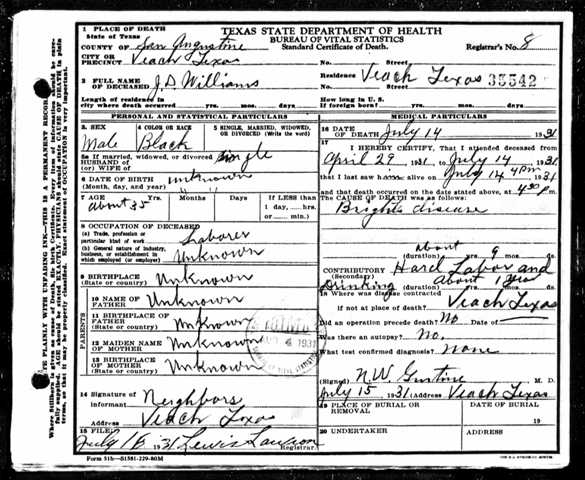 TEXAS STATE DEPARTMENT OF HEALTH
BUREAU OF VITAL STATISTICS
Standard Certificate of Death.
Registrar's No. 8
1 PLACE OF DEATH
State of Texas
COUNTY OF San Augustine
CITY OR PRECINCT Veach Texas No. Street
2 FULL NAME OF DECEASED J.D. Williams
Residence Veach Texas 35542
No. Street
Length of residence in city where death occurred yrs. mos. days
How long in U.S. if foreign born? yrs. mos. days
PERSONAL AND STATISTICAL PARTICULARS
3. SEX Male
4 COLOR OR RACE Black
5 SINGLE, MARRIED, WIDOWED, OR DIVORCED (Write the word)
5a If married, widowed, or divorced Single
HUSBAND OF
(or) WIFE OF
6 DATE OF BIRTH (Month, day, and year) unknown
7 AGE Years Months Days If LESS than 1 day, hrs. or min.
about 35
8 OCCUPATION OF DECEASED
(a) Trade, profession or particular kind of work Laborer
(b) General nature of industry, business, or establishment in which employed (or employer) Unknown
9 BIRTHPLACE (State or country) Unknown
PARENTS
10 NAME OF FATHER Unknown
11 BIRTHPLACE OF FATHER (State or country) Unknown
12 MAIDEN NAME OF MOTHER Unknown
13 BIRTHPLACE OF MOTHER (State or country) Unknown
14 Signature of informant Neighbors
Address Veach Texas
15 FILED July 16 1931 Lewis Lawson Registrar.
Form 51b-S1581-229-80M
MEDICAL PARTICULARS
16 DATE OF DEATH July 14 1931
17 I HEREBY CERTIFY, That I attended deceased from
April 29 1931 to July 14 1931
that I last saw him alive on July 14 4 pm 1931
and that death occurred on the date stated above, at 4:30 p.m.
The CAUSE OF DEATH was as follows:
Brights disease
about
(duration) yrs. 9 mos. ds.
CONTRIBUTORY Hard Labor and
(Secondary) Drinking About 1 year
(duration) yrs. mos. ds.
18 Where was disease contracted
if not at place of death? Veach Texas
Did an operation precede death? No Date of
Was there an autopsy? No.
What test confirmed diagnosis? None
(Signed) N.W. M. D.
July 15 1931 (Address) Veach Texas
19 PLACE OF BURIAL OR REMOVAL
DATE OF BURIAL
19
20 UNDERTAKER ADDRESS